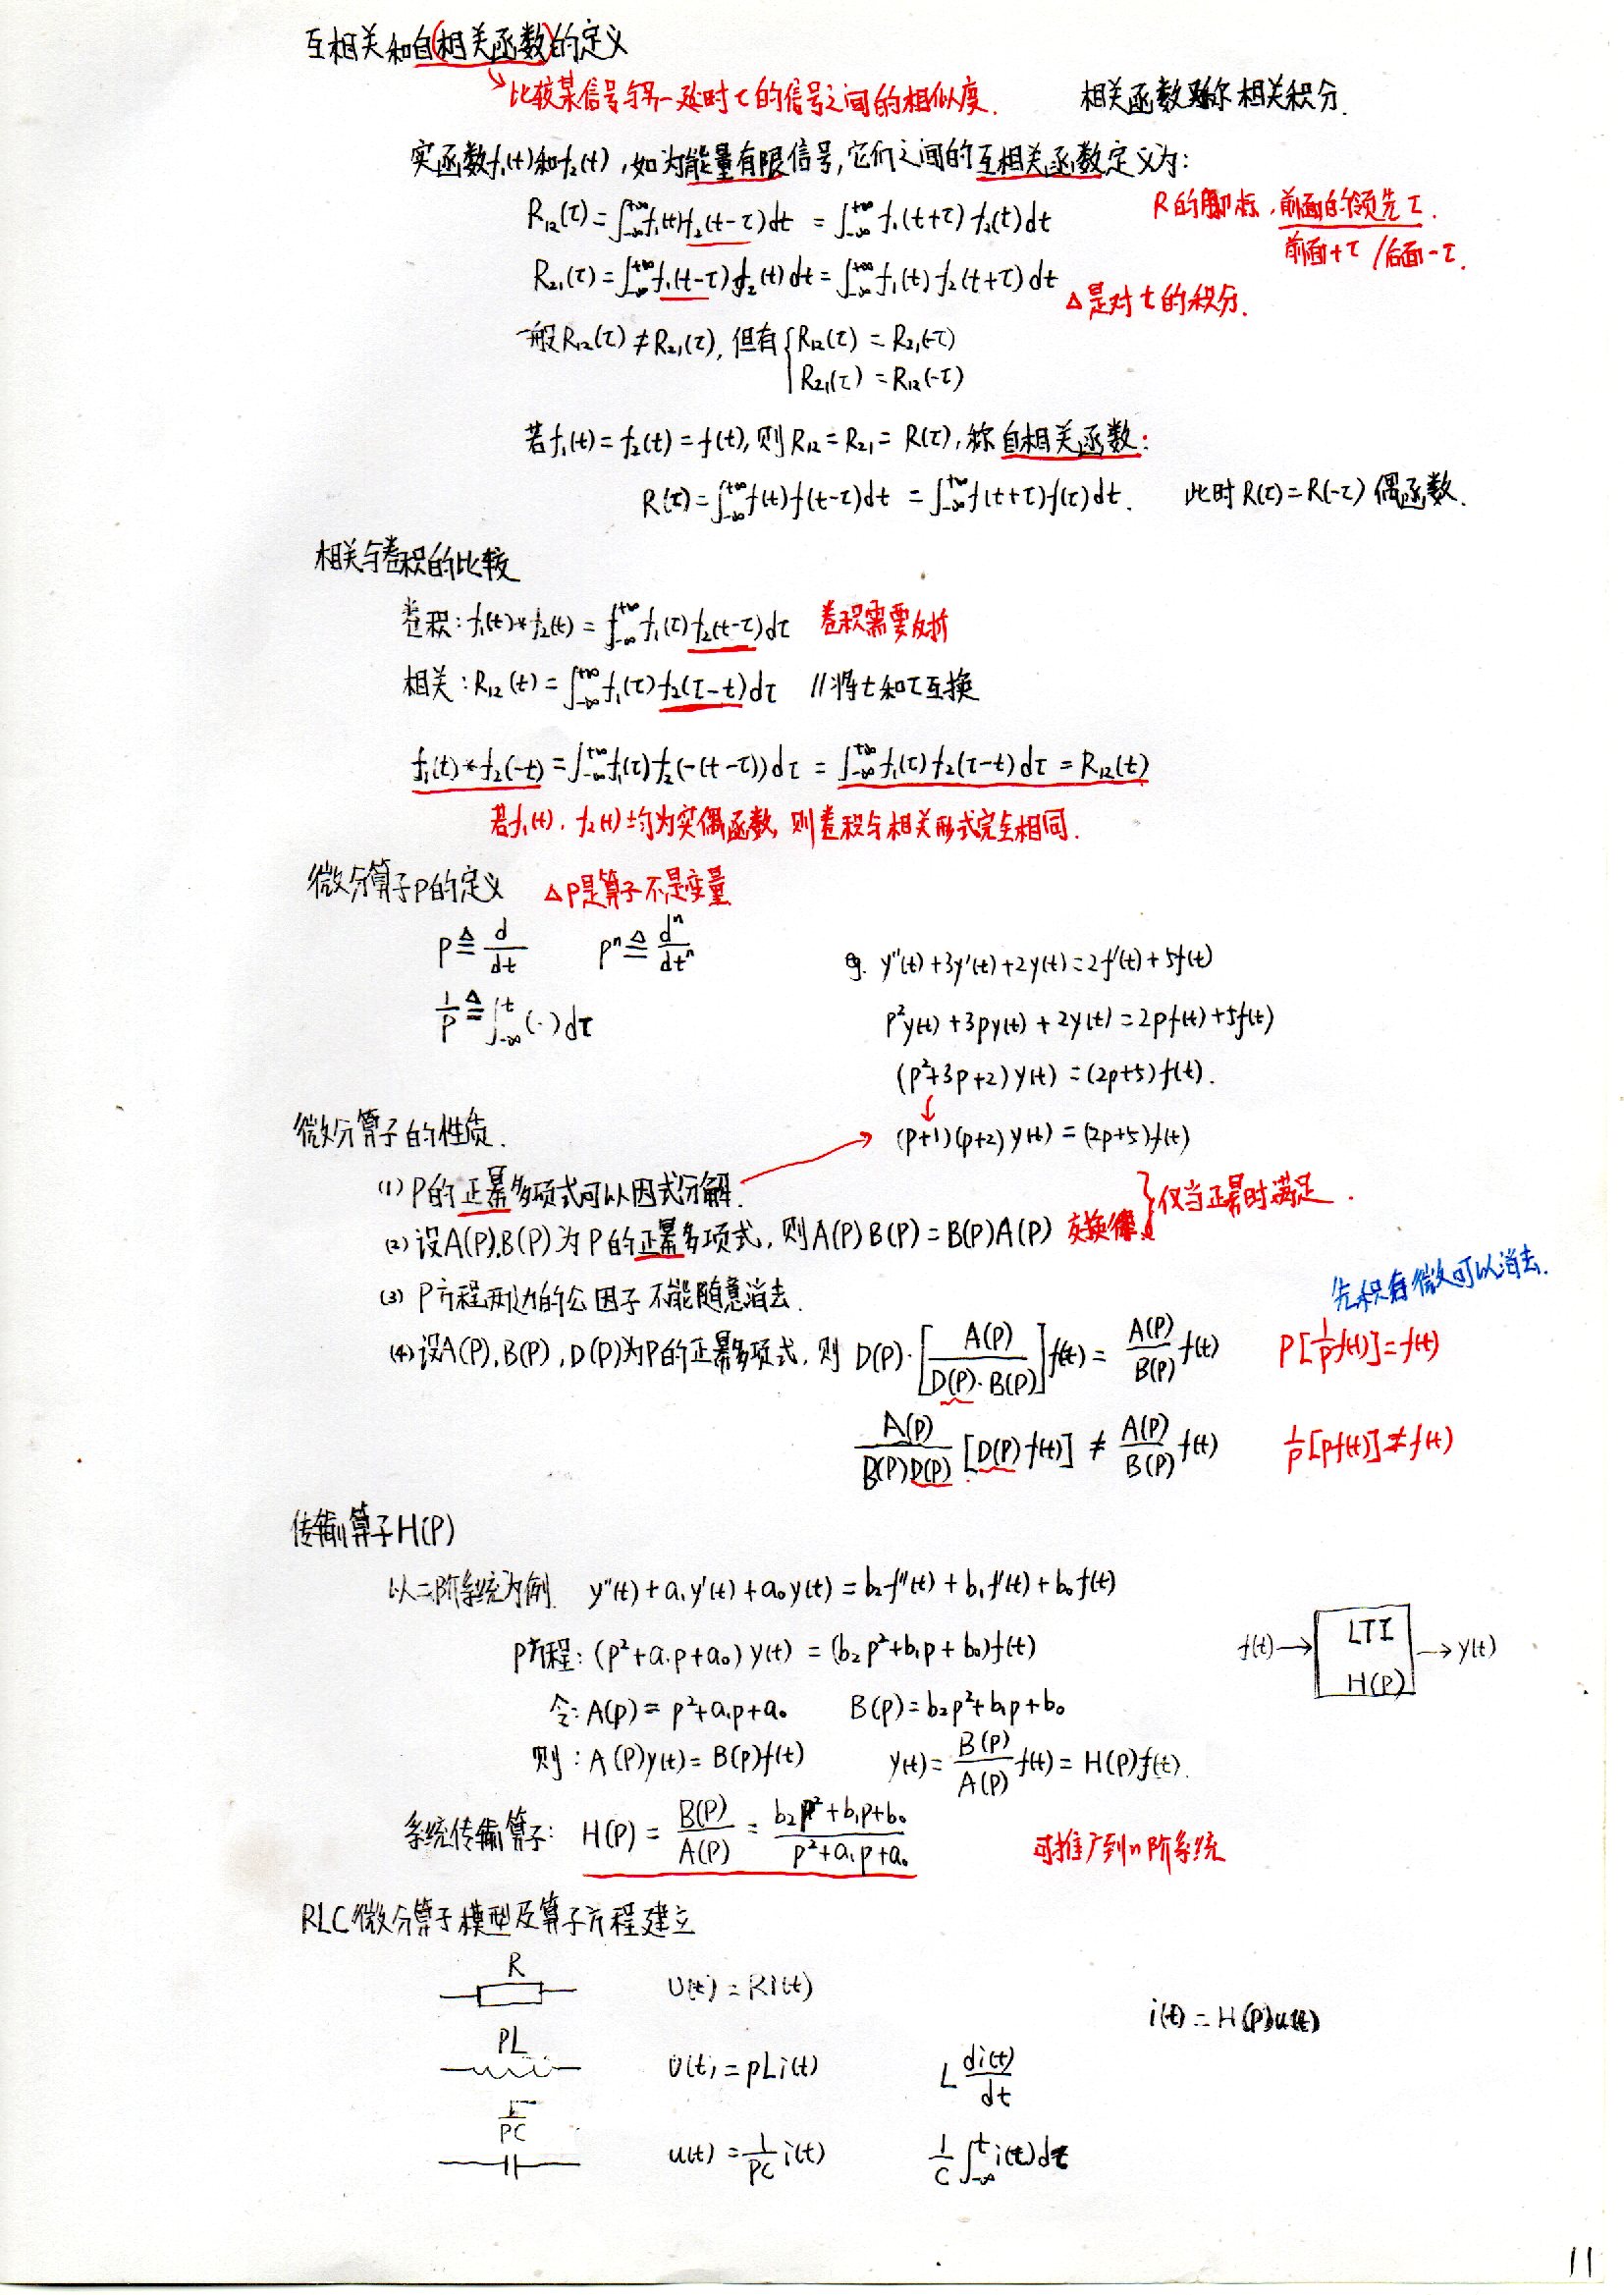 互相关和自(相关函数)的定义
↘比较某信号与另一延时τ的信号之间的相似度.  相关函数又称相关积分.
实函数f₁(t)和f₂(t),如为能量有限信号,它们之间的互相关函数定义为:
R₁₂(τ)=∫_{-∞}^{+∞}f₁(t)f₂(t-τ)dt = ∫_{-∞}^{+∞}f₁(t+τ)f₂(t)dt  R的脚标,前面的领先τ.
前面+τ/后面-τ.
R₂₁(τ)=∫_{-∞}^{+∞}f₁(t-τ)f₂(t)dt=∫_{-∞}^{+∞}f₁(t)f₂(t+τ)dt  △是对t的积分.
一般R₁₂(τ)≠R₂₁(τ),但有{R₁₂(τ)=R₂₁(-τ)
R₂₁(τ)=R₁₂(-τ)
若f₁(t)=f₂(t)=f(t),则R₁₂=R₂₁=R(τ),称自相关函数:
R(τ)=∫_{-∞}^{+∞}f(t)f(t-τ)dt =∫_{-∞}^{+∞}f(t+τ)f(τ)dt.  此时R(τ)=R(-τ)偶函数.
相关与卷积的比较
卷积:f₁(t)*f₂(t)=∫_{-∞}^{+∞}f₁(τ)f₂(t-τ)dτ  卷积需要反折
相关:R₁₂(t)=∫_{-∞}^{+∞}f₁(τ)f₂(τ-t)dτ  //将t和τ互换
f₁(t)*f₂(-t)=∫_{-∞}^{+∞}f₁(τ)f₂(-(t-τ))dτ=∫_{-∞}^{+∞}f₁(τ)f₂(τ-t)dτ=R₁₂(t)
若f₁(t),f₂(t)均为实偶函数,则卷积与相关形式完全相同.
微分算子P的定义  △P是算子不是变量
P≜d/dt  Pⁿ≜dⁿ/dtⁿ
1/P≜∫_{-∞}^{t}(·)dτ
eg. y''(t)+3y'(t)+2y(t)=2f'(t)+5f(t)
P²y(t)+3py(t)+2y(t)=2pf(t)+5f(t)
(P²+3P+2)y(t)=(2p+5)f(t).
↓
(P+1)(p+2)y(t)=(2p+5)f(t)
微分算子的性质.
(1) P的正幂多项式可以因式分解.
(2) 设A(P),B(P)为P的正幂多项式,则A(P)B(P)=B(P)A(P) 交换律 } 仅当正幂时满足.
(3) P方程两边的公因子不能随意消去.
先积后微可以消去.
(4) 设A(P),B(P),D(P)为P的正幂多项式,则 D(P)·[A(P)/(D(P)·B(P))]f(t)=A(P)/B(P) f(t)  P[1/P f(t)]=f(t)
A(P)/(B(P)D(P)) [D(P)f(t)]≠A(P)/B(P) f(t)  1/P[Pf(t)]≠f(t)
传输算子H(P)
以二阶系统为例.  y''(t)+a₁y'(t)+a₀y(t)=b₂f''(t)+b₁f'(t)+b₀f(t)
P方程:(P²+a₁p+a₀)y(t)=(b₂p²+b₁p+b₀)f(t)
f(t)→ LTI H(P) →y(t)
令:A(p)=p²+a₁p+a₀  B(p)=b₂p²+b₁p+b₀
则:A(P)y(t)=B(p)f(t)  y(t)=B(P)/A(P) f(t)=H(P)f(t).
系统传输算子: H(P)=B(P)/A(P)=(b₂p²+b₁p+b₀)/(p²+a₁p+a₀)  可推广到n阶系统
RLC微分算子模型及算子方程建立
R  U(t)=Ri(t)
i(t)=H(P)u(t)
PL  U(t)=pLi(t)  L di(t)/dt
1/PC  u(t)=1/PC i(t)  1/C∫_{-∞}^{t}i(τ)dτ
11